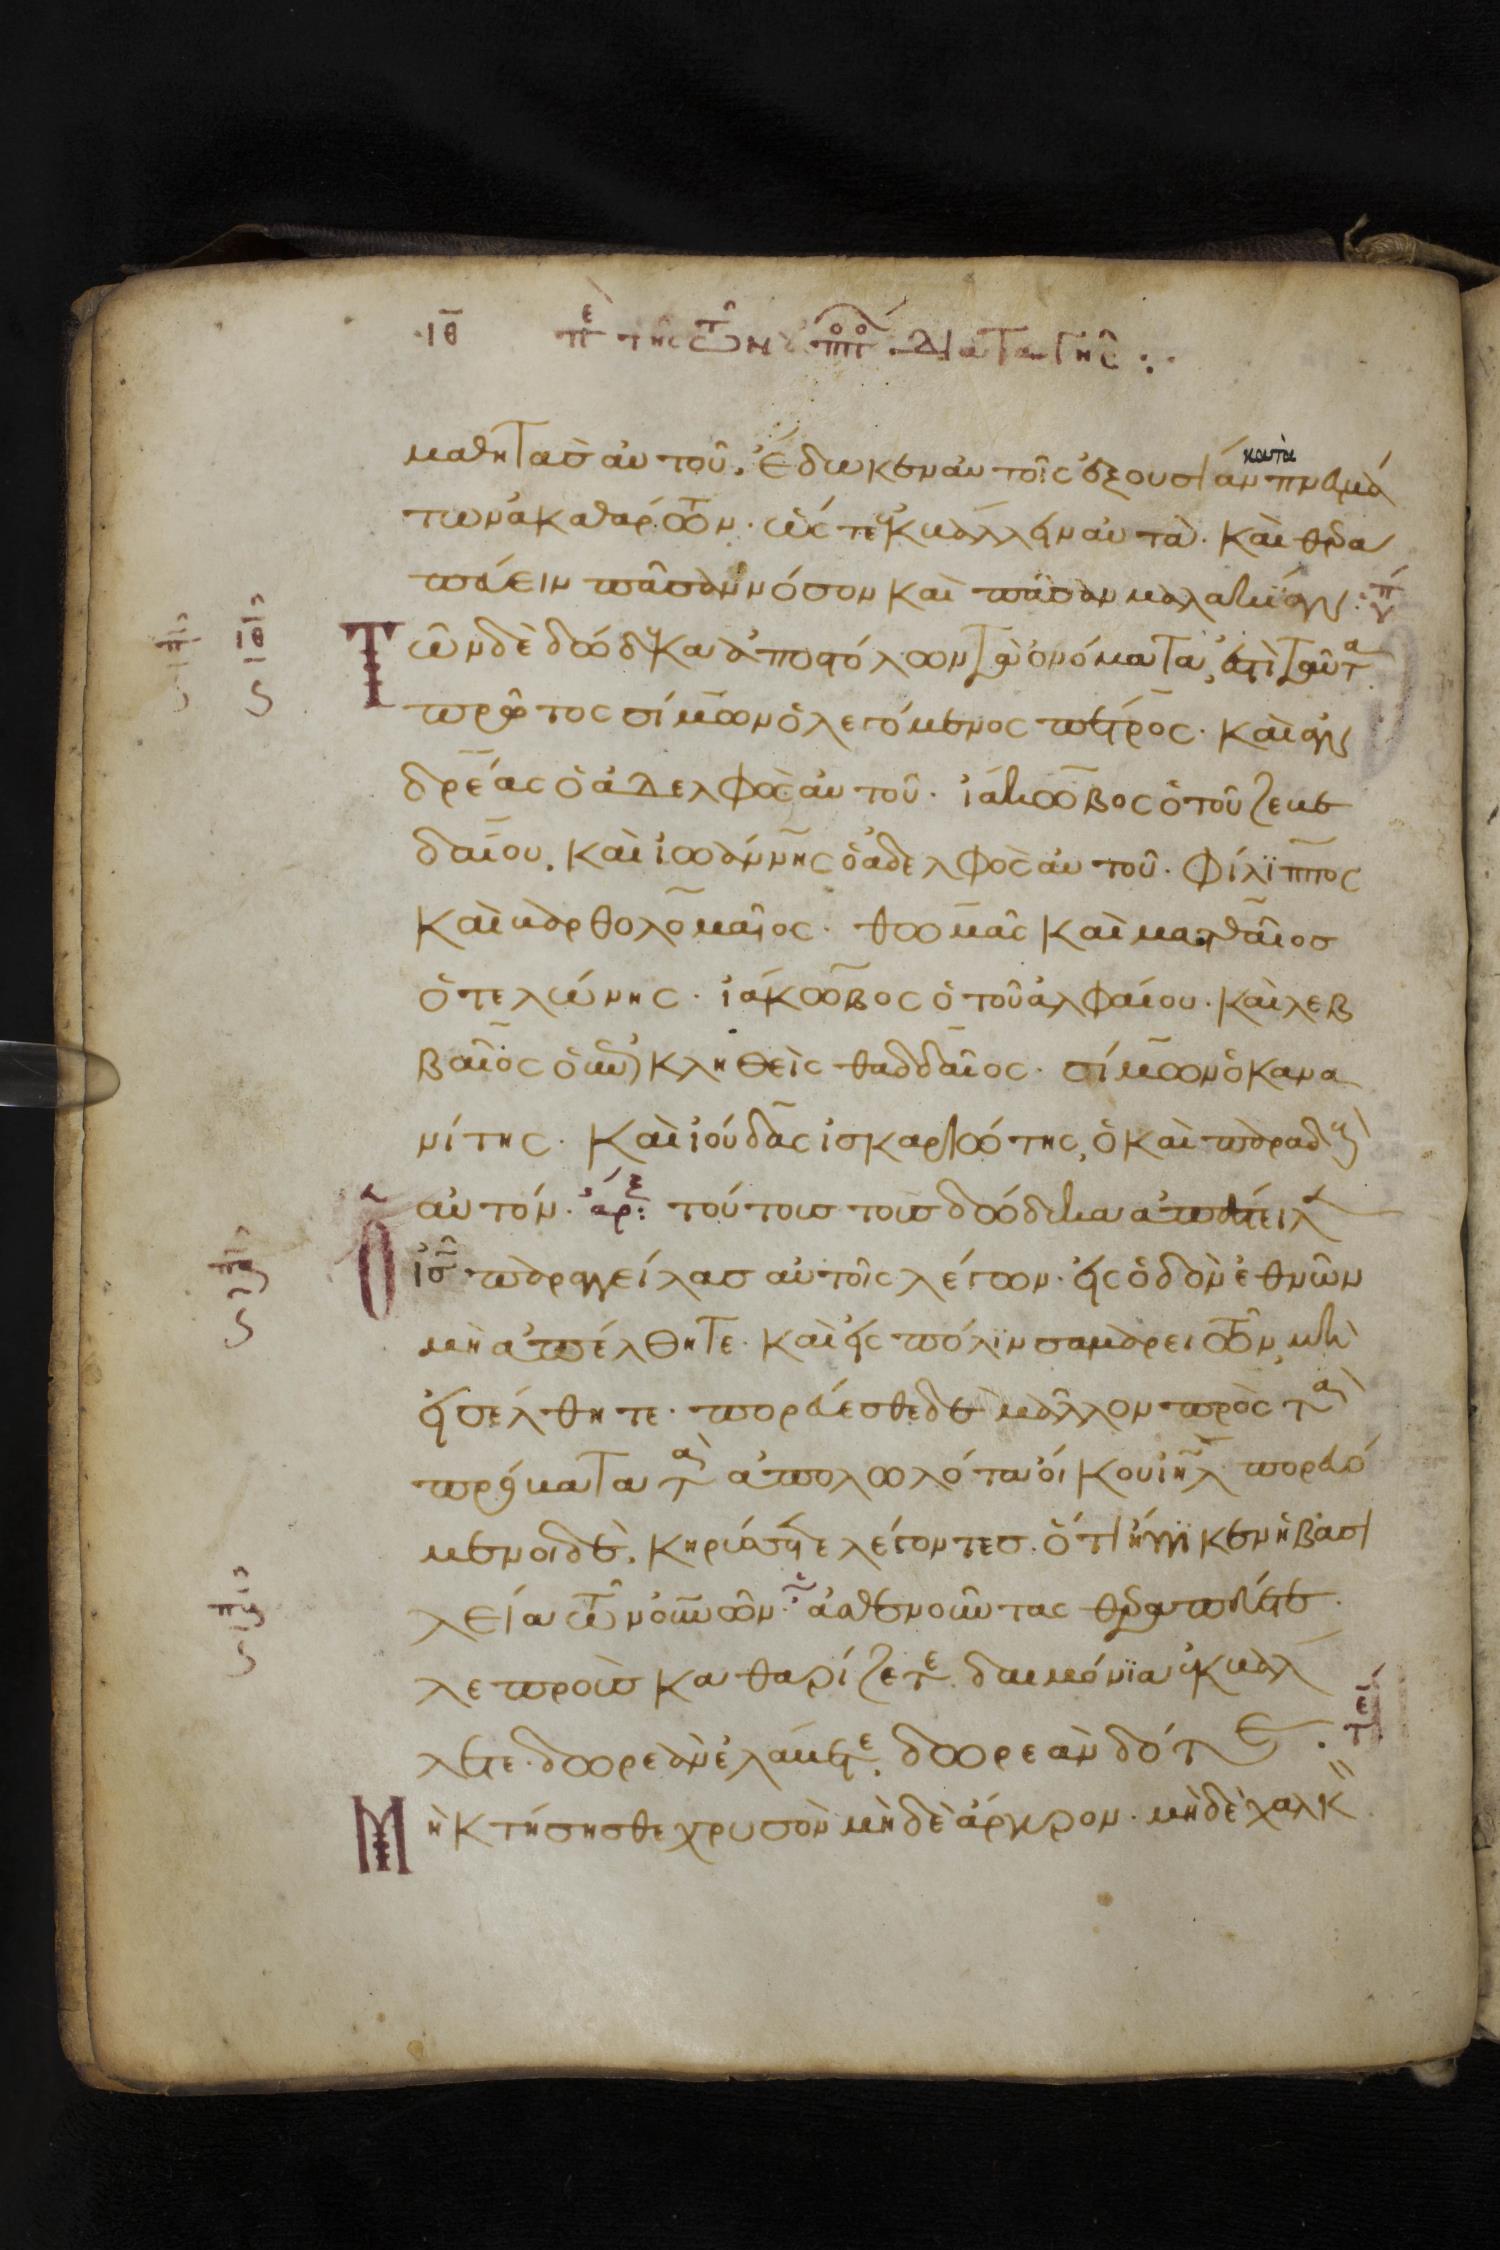 ιθ πε της των αποστολων διαταγης
μαθητὰσ αὐτοῦ. ἔδωκεν αὐτοῖς ἐξουσίαν κατὰ πνευμά
των ἀκαθάρτων. ὥστε ἐκβάλλειν αὐτὰ. καὶ θερα
πεύειν πᾶσαν νόσον καὶ πᾶσαν μαλακίαν:
Τῶν δὲ δώδεκα ἀποστόλων τὰ ὀνόματα, ἐστὶ ταῦτα
πρῶτος σίμων ὁ λεγόμενος πέτρος. καὶ ἀν
δρέας ὁ ἀδελφὸς αὐτοῦ. ἰάκωβος ὁ τοῦ ζεβε
δαίου. καὶ ἰωάννης ὁ ἀδελφὸς αὐτοῦ. φίλιππος
καὶ βαρθολομαῖος. θωμᾶς καὶ ματθαῖοσ
ὁ τελώνης. ἰάκωβος ὁ τοῦ ἀλφαίου. καὶ λεβ
βαῖος ὁ ἐπικληθεὶς θαδδαῖος. σίμων ὁ κανα
νίτης. καὶ ἰούδας ἰσκαριώτης, ὁ καὶ παραδοὺς
αὐτόν. ἀρχ: τούτουσ τοὺσ δώδεκα ἀπέστειλεν
Ὁ ἰσ παραγγείλασ αὐτοῖς λέγων. εἰς ὁδὸν ἐθνῶν
μὴ ἀπέλθητε. καὶ εἰς πόλιν σαμαρειτῶν, μὴ
εἰσέλθητε. πορεύεσθε δὲ μᾶλλον πρὸς τὰ
πρόβατα τὰ ἀπολωλότα οἴκου ιηλ πορευό
μενοι δὲ. κηρύσσετε λέγοντεσ. ὅτι ἤγγικεν ἡ βασι
λεία τῶν οὐνῶν. ἀσθενοῦντας θεραπεύετε.
λεπροὺσ καθαρίζετε. δαιμόνια ἐκβάλ
λετε. δωρεὰν ἐλάβετε. δωρεὰν δότε. τελ
Μὴ κτήσησθε χρυσὸν μὴδὲ ἄργυρον. μὴδὲ χαλκὸν